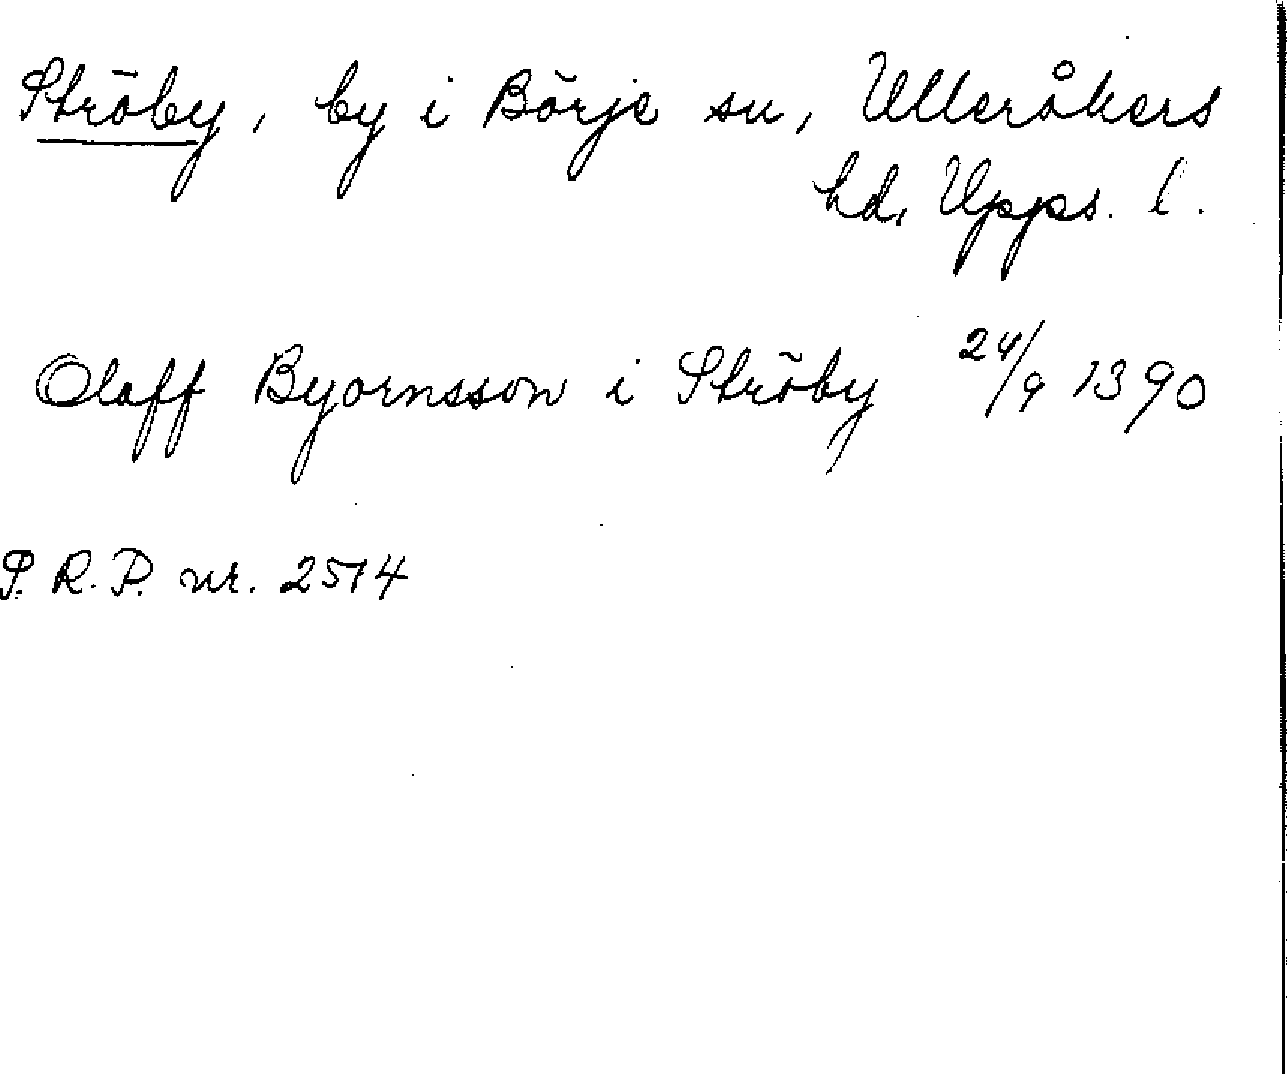 Ströby, by i Börje sn, Ulleråkers
hd, Upps. l.
Olaff Byornsson i Ströby 24/9 1390
S.R.P. nr. 2514